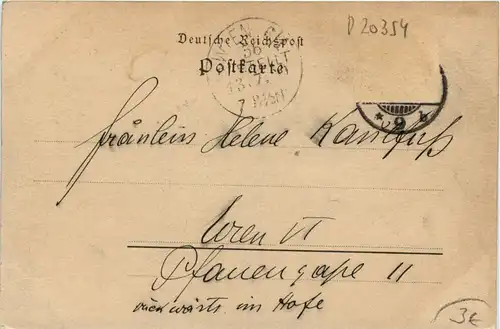 D 20354
Deutsche Reichspost
Postkarte
56
13.7.
* 9 b
Fräulein Helene
Wien VI
Pfauengasse 11
rückwärts im Hofe
3€